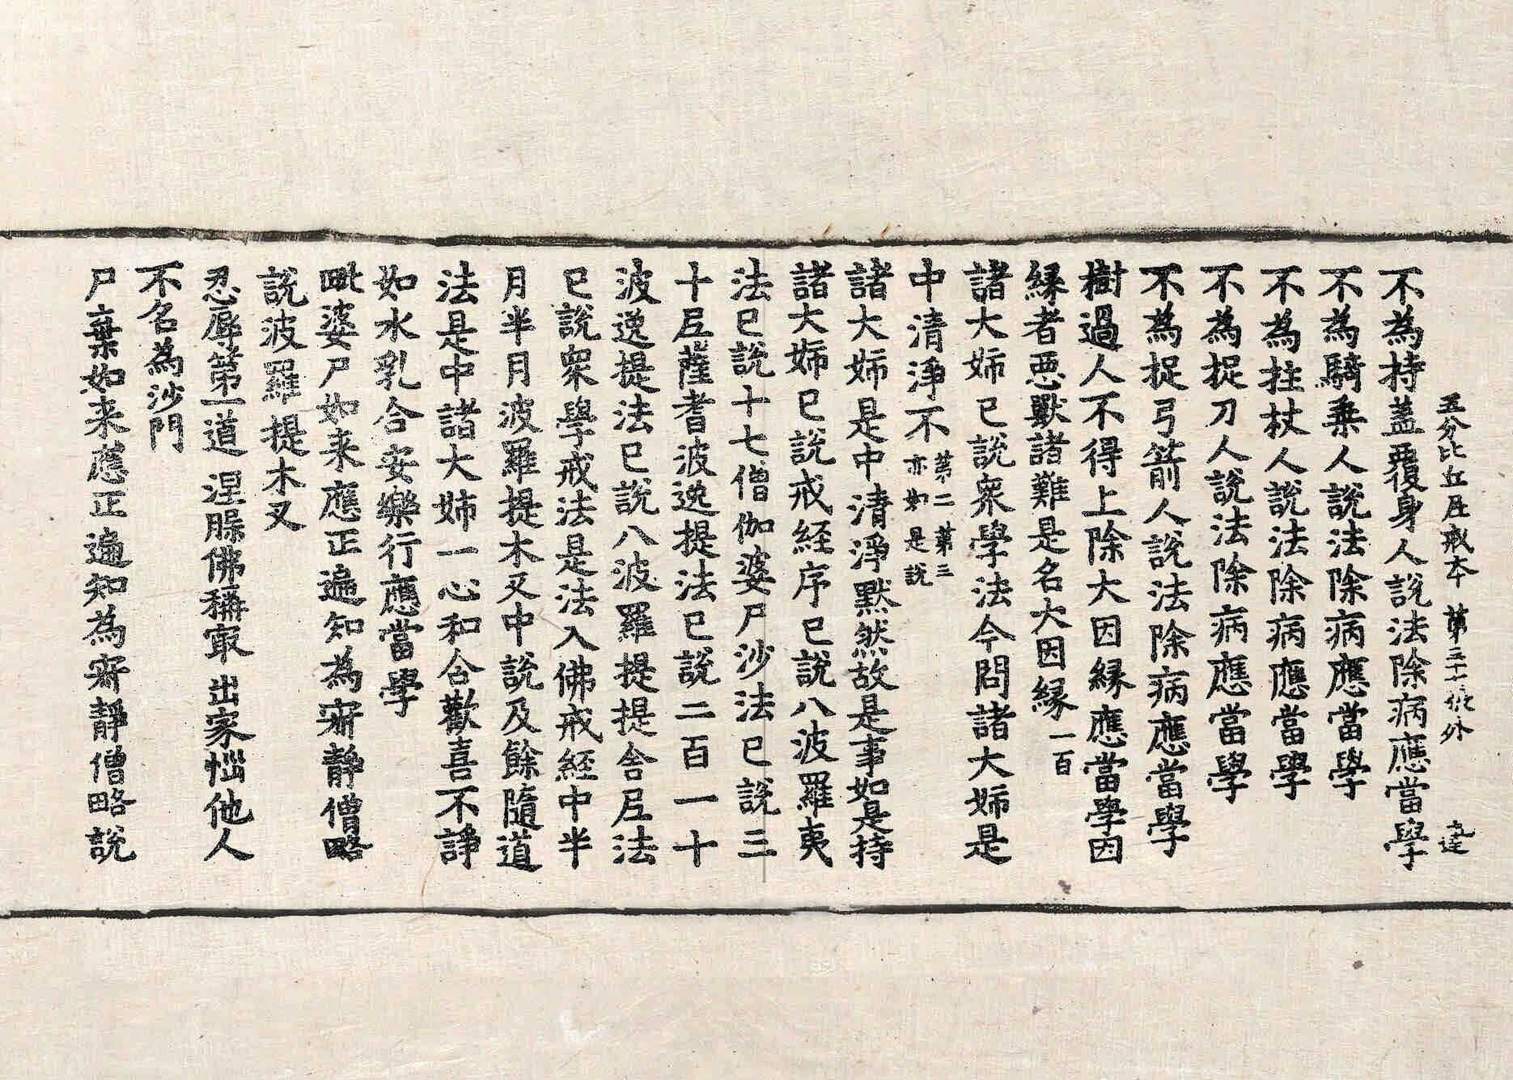 五分比丘尼戒本 第三十張外 九達
不為持蓋覆身人說法除病應當學
不為騎乗人說法除病應當學
不為拄杖人說法除病應當學
不為捉刀人說法除病應當學
不為捉弓箭人說法除病應當學
樹過人不得上除大因縁應當學因
縁者惡獸諸難是名大因縁一百
諸大姉已說衆學法今問諸大姉是
中清淨不第二第三亦如是說
諸大姉是中清淨黙然故是事如是持
諸大姉已說戒経序已說八波羅夷
法已說十七僧伽婆尸沙法已說三
十尼薩耆波逸提法已說二百一十
波逸提法已說八波羅提提舎尼法
已說衆學戒法是法入佛戒経中半
月半月波羅提木叉中說及餘隨道
法是中諸大姉一心和合歡喜不諍
如水乳合安樂行應當學
毗婆尸如来應正遍知為寂靜僧略
說波羅提木叉
忍辱第一道 涅槃佛稱冣 出家惱他人
不名為沙門
尸棄如来應正遍知為寂靜僧略說